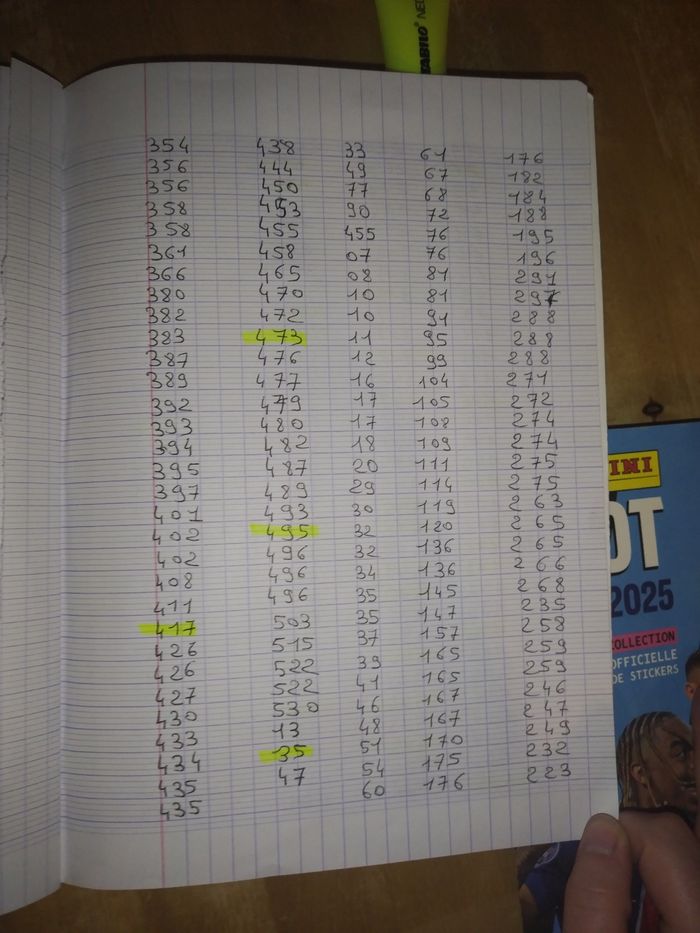 TABILO® NEO
354
356
356
358
358
361
366
380
382
383
387
389
392
393
394
395
397
401
402
402
408
411
417
426
426
427
430
433
434
435
435
438
444
450
453
455
458
465
470
472
473
476
477
479
480
482
487
489
493
495
496
496
496
503
515
522
522
530
13
35
47
33
49
77
90
455
07
08
10
10
11
12
16
17
17
18
20
29
30
32
32
34
35
35
37
39
41
46
48
51
54
60
61
67
68
72
76
76
81
81
91
95
99
104
105
108
109
111
114
119
120
136
136
145
147
157
165
165
167
167
170
175
176
176
182
184
188
195
196
291
297
288
288
288
271
272
274
274
275
275
263
265
265
266
268
235
258
259
259
246
247
249
232
223
INI
OT
2025
COLLECTION
OFFICIELLE
DE STICKERS